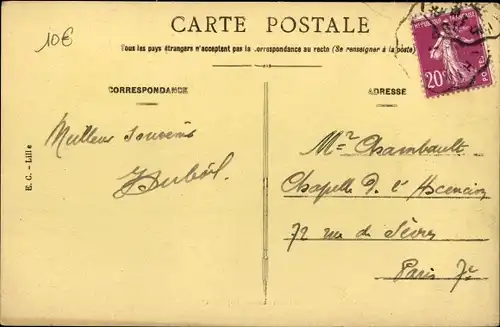 10€
CARTE POSTALE
Tous les pays étrangers n'acceptent pas la correspondance au recto (Se renseigner à la poste)
CORRESPONDANCE
ADRESSE
Meilleurs souvenirs
E. C. - Lille
Mr Chambault
Chapelle D. l'Ascension
72 rue de Sèvres
Paris 7e
20c
POSTES